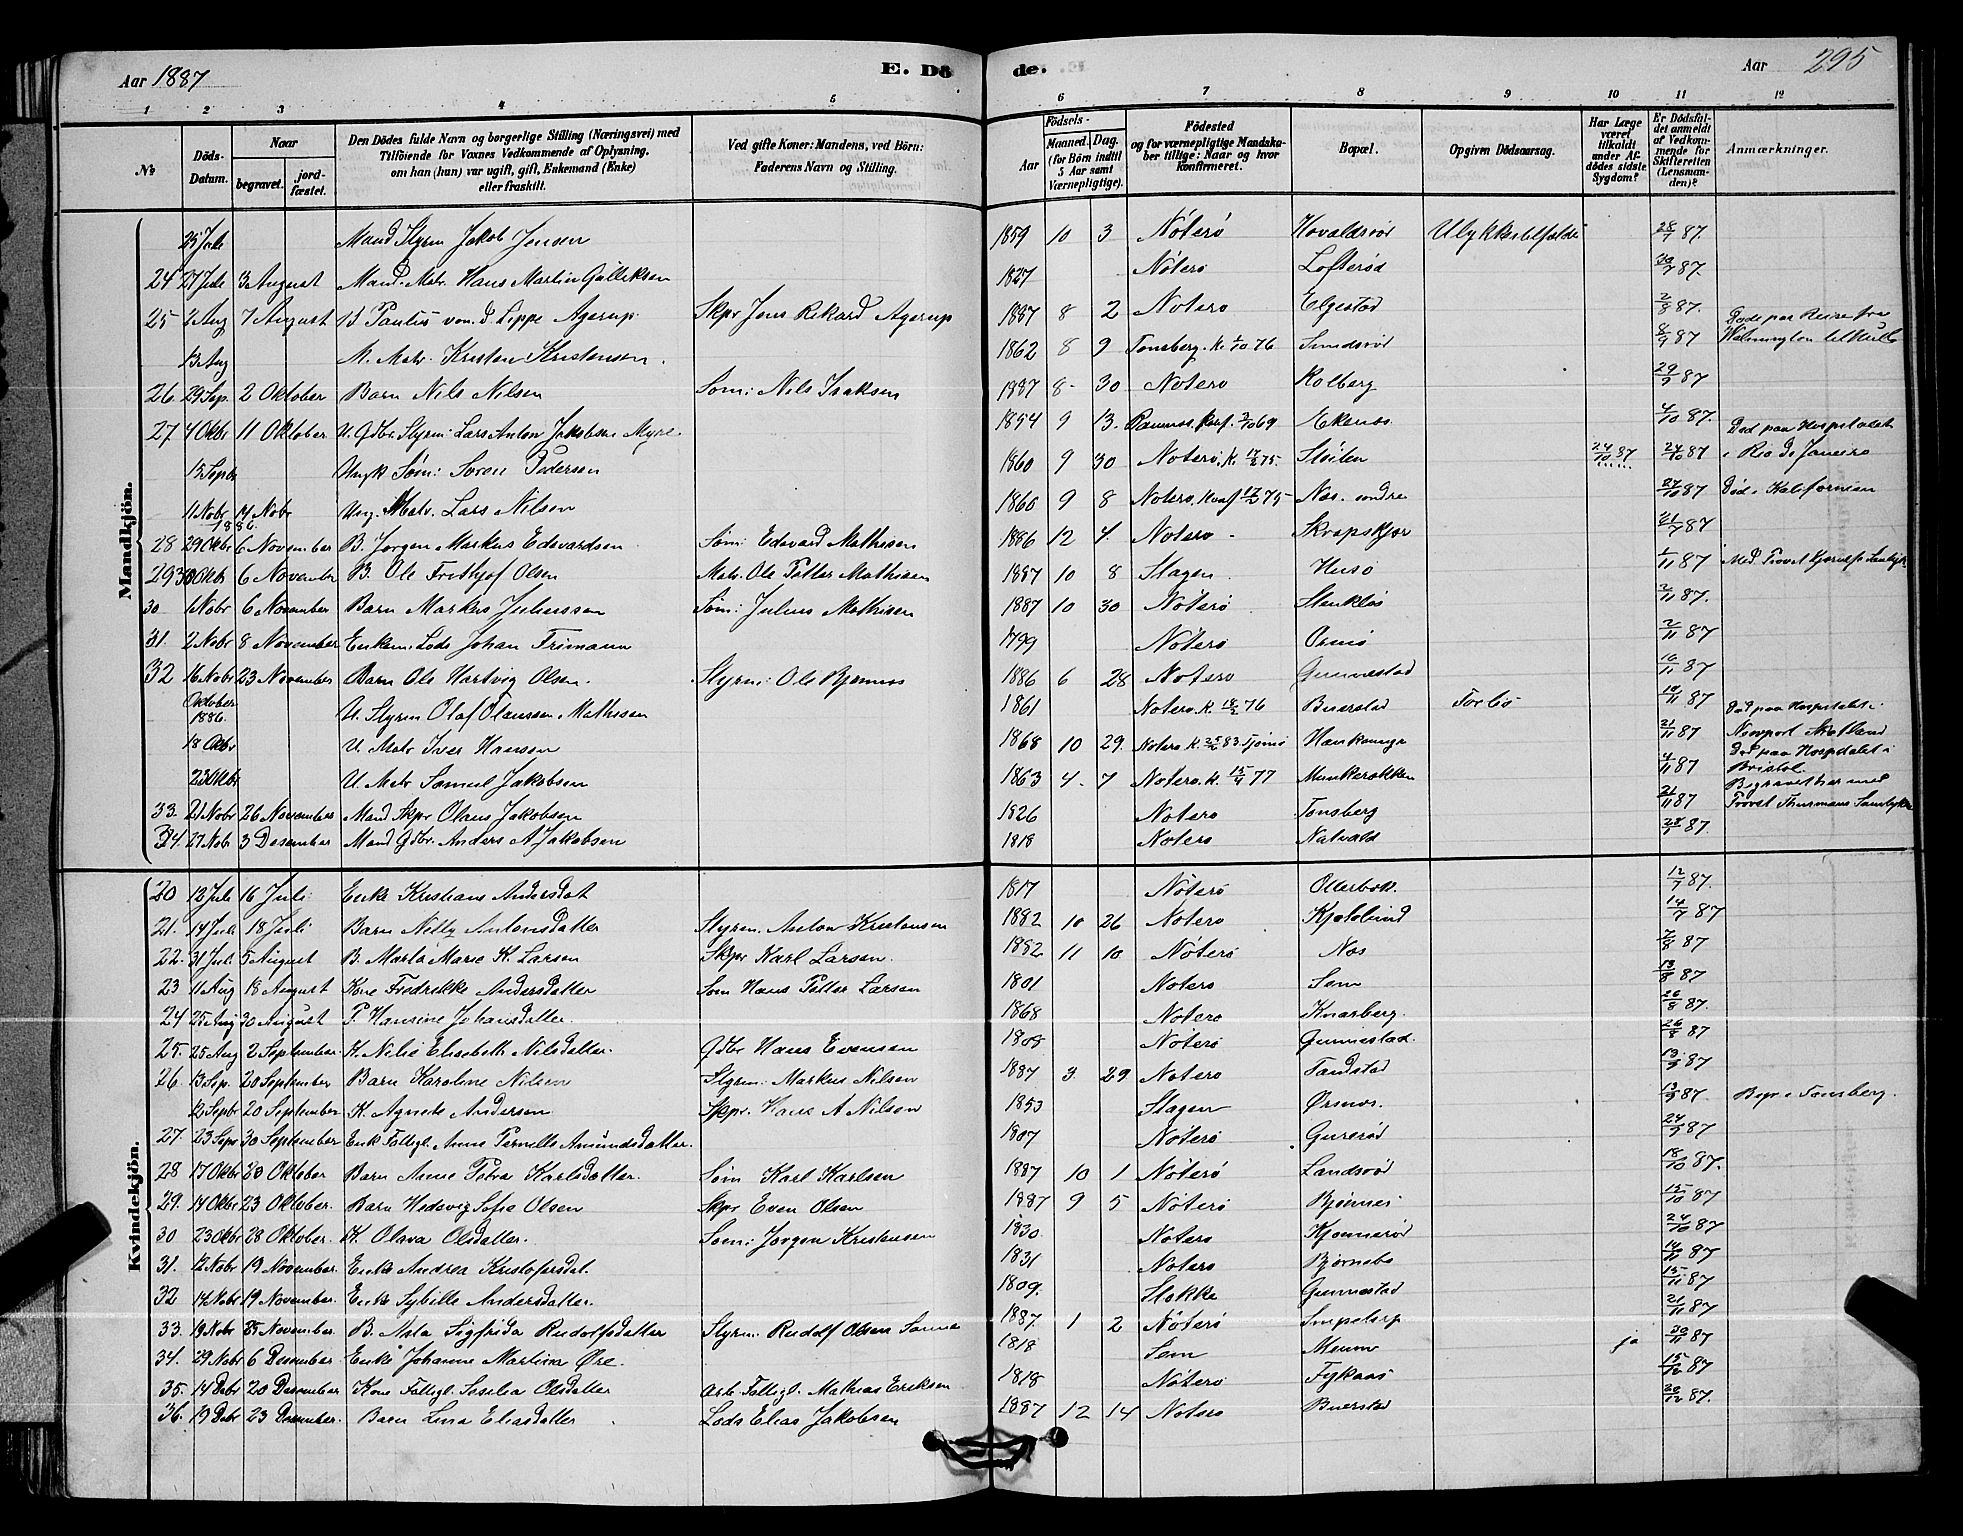 Aar 1887 E. Dö de. Aar 295
1 2 3 4 5 6 7 8 9 10 11 12
№ Döds-Datum. Naar begravet. jordfæstet. Den Dödes fulde Navn og borgerlige Stilling (Næringsvei) med Tilföiende for Voxnes Vedkommende af Oplysning, om han (hun) var ugift, gift, Enkemand (Enke) eller fraskilt. Ved gifte Koner: Mandens, ved Börn: Faderens Navn og Stilling. Födsels- Aar Maaned. Dag. (for Börn indtil 5 Aar samt Værnepligtige). Födested og for værnepligtige Mandskaber tillige: Naar og hvor Konfirmeret. Bopæl. Opgiven Dödsaarsag. Har Læge været tilkaldt under Afdödes sidste Sygdom? Er Dödsfaldet anmeldt af Vedkommende for Skifteretten (Lensmanden)? Anmærkninger.
Mandkjön.
25 Juli Mand Styrm Jakob Jensen 1859 10 3 Nöterö Hovaldsröd Ulykkestilfælde 28/7 87.
24 27 Juli 3 August Mand. Matr. Hans Martin Gulliksen 1827 Nöterö Lofteröd 30/7 87.
25 2 Aug 7 August B Paulus von. d. Lippe Agerup Skpr Jens Rikard Agerup 1887 8 2 Noterö Elgestad 2/8 87.
13 Aug M. Matr. Kristen Kristensen. 1862 8 9 Tonsberg. K. 1/10 76 Smidsröd 8/9 87 Döde paa Reise fra Walmington til Hull
26. 29 Sep. 2 Oktober Barn Nils Nilsen Söm: Nils Isaksen 1887 8 30 Noterö Kolberg 29/9 87
27 4 Oktbr 11 Oktober U. Gdbr Styrm: Lars Anton Jakobsen Myre. 1854 9 13. Ramnes. Konf. 3/10 69 Ekenes 4/10 87.
13 Septbr Ungk Söm: Soren Pedersen 1860 9 30 Noterö. K. 75. Stöiten 24/10 87 24/10 87 Död paa Hospitalet i Rio De Janeiro
11 Nobr 1886. 14 Nobr Ung. Matr. Lars Nilsen 1860 9 8 Noterö. Konf 75 Nes. söndre 27/10 87 Död i Kalifornien
28 29 Oktbr 6 November B. Jorgen Markus Edevardsen Söm: Edevard Mathisen 1886 12 4. Noterö Skrapskjær 87
29 30 Oktb 6 November B. Ole Frithjof Olsen Matr. Ole Petter Mathisen 1887 10 8 Slagen Husö 1/11 87
30 1 Nobr 6 November Barn Markus Juliussen Söm: Julius Mathisen 1887 10 30 Nöterö Stenklös 2/11 87.
31. 2 Nobr 8 November Enkem. Lods Johan Frimann 1799 Nöterö Ormö 2/11 87
32 16 Nobr 23 November Barn Ole Hartvig Olsen. Styrm: Ole Bjonnes 1886 6 28 Noterö Gunnestad 16/11 87
Oktober 1886. U. Styrm Olaf Olaussen Mathisen 1861 Noterö. K. 76 Buerstad 19/11 87
18 Oktbr U. Matr Iver Hansen 1868 10 29. Noterö K. 83. Tjömö 21/11 87 Död paa Hospitalet i Newport Skotland
23 Oktbr U. Matr Samuel Jakobsen 1863 4. 7 Noterö. K. 15/4 77 Munkerökken 4/11 87 Död paa Hospitalet i Bristol
33. 21 Nobr 26 November Mand Skpr Olaus Jakobsen 1826 Noterö Tonsberg 21/11 87 Begravet her med Provst Thurmans Samtykke
34. 27 Nob. 3 Desember Mand Gdbr. Anders A Jakobsen 1818 Noterö Natvald 87.
Kvindekjön.
20 12 Juli 16 Juli Enke Kristiane Andersdat 1817 Nöterö Otterbek. 12/7 87.
21. 14 Juli 18 Juli Barn Nelly Antonsdatter Styrm. Anton Kristensen 1882 10 26 Noterö Kjölelund 14/7 87
22. 31 Juli 5 August B. Marta Marie K. Larsen Skpr Karl Larsen. 1882 11 10 Nöterö Nes 2/8 87
23 11 Aug 18 August Kone Fredrikke Andersdatter Söm Hans Petter Larsen 1801 Noterö Sem 13/8 87
24 25 Aug 30 August P. Hansine Johansdatter. 1868 Noterö Knarberg. 26/8 87.
25. 25 Aug 2 September. K. Nilie Elisabeth Nilsdatter. Gdbr Hans Evensen 1808 Nöterö Gunnestad. 26/8 87
26. 13 Sep. 20 September Barn Karoline Nilsen Styrm: Markus Nilsen 1887 3. 29 Noterö Tandstad 13/9 87
12 Septbr 20 September K. Agnete Andersen Skpr. Hans A Nilsen 1853 Slagen Örsnes. 13/9 87. Begr. i Tonsberg.
27. 23 Sepr 30 September Enk Fattigl. Anne Pernille Amundsdatter. 1807 Nöterö Guseröd 24/9 87
28 17 Oktbr 20 Oktober Barn Anne Petra Karlsdatter. Söm Karl Karlsen 1887 10 1 Nöterö Landsröd 18/10 87.
29. 14 Oktbr 23 Oktober. Barn Hedevig Sofie Olsen Skpr Even Olsen 1887 9 5 Nöterö Bjönnes 15/10 87
30 23 Oktbr 28 Oktober. K. Olava Olsdatter. Söm: Jorgen Kristensen 1830 Noterö Kjönneröd 24/10 87
31. 12 Nobr 19 November. Enke Andrea Kristofersdat. 1831 Noterö Bjørnebo 14/11 87
32 14 Nobr 19 November. Enke Sybille Andersdatter. 1809. Stokke Gunnestad 15/11 87
33. 19 Nobr 25 November. B. Asta Sigfrida Rudolfsdatter Styrm: Rudolf Olsen 1887. 1 2 Nöterö 21/11 87
34. 29 Nobr 6 Desember. Enke Johanne Martine Öre. 1818 Sem ja 30/11 87
35. 14 Debr 20 Desember Kone Fattigl. Seselia Olsdatter Arb. Fattigl. Mathias Eriksen 1818 Nöterö 15/12 87
36. 19 Debr 23 Desember. Barn Lina Eliasdatter Lods Elias Jakobsen 1887 12 14 Noterö Buerstad 20/12 87.